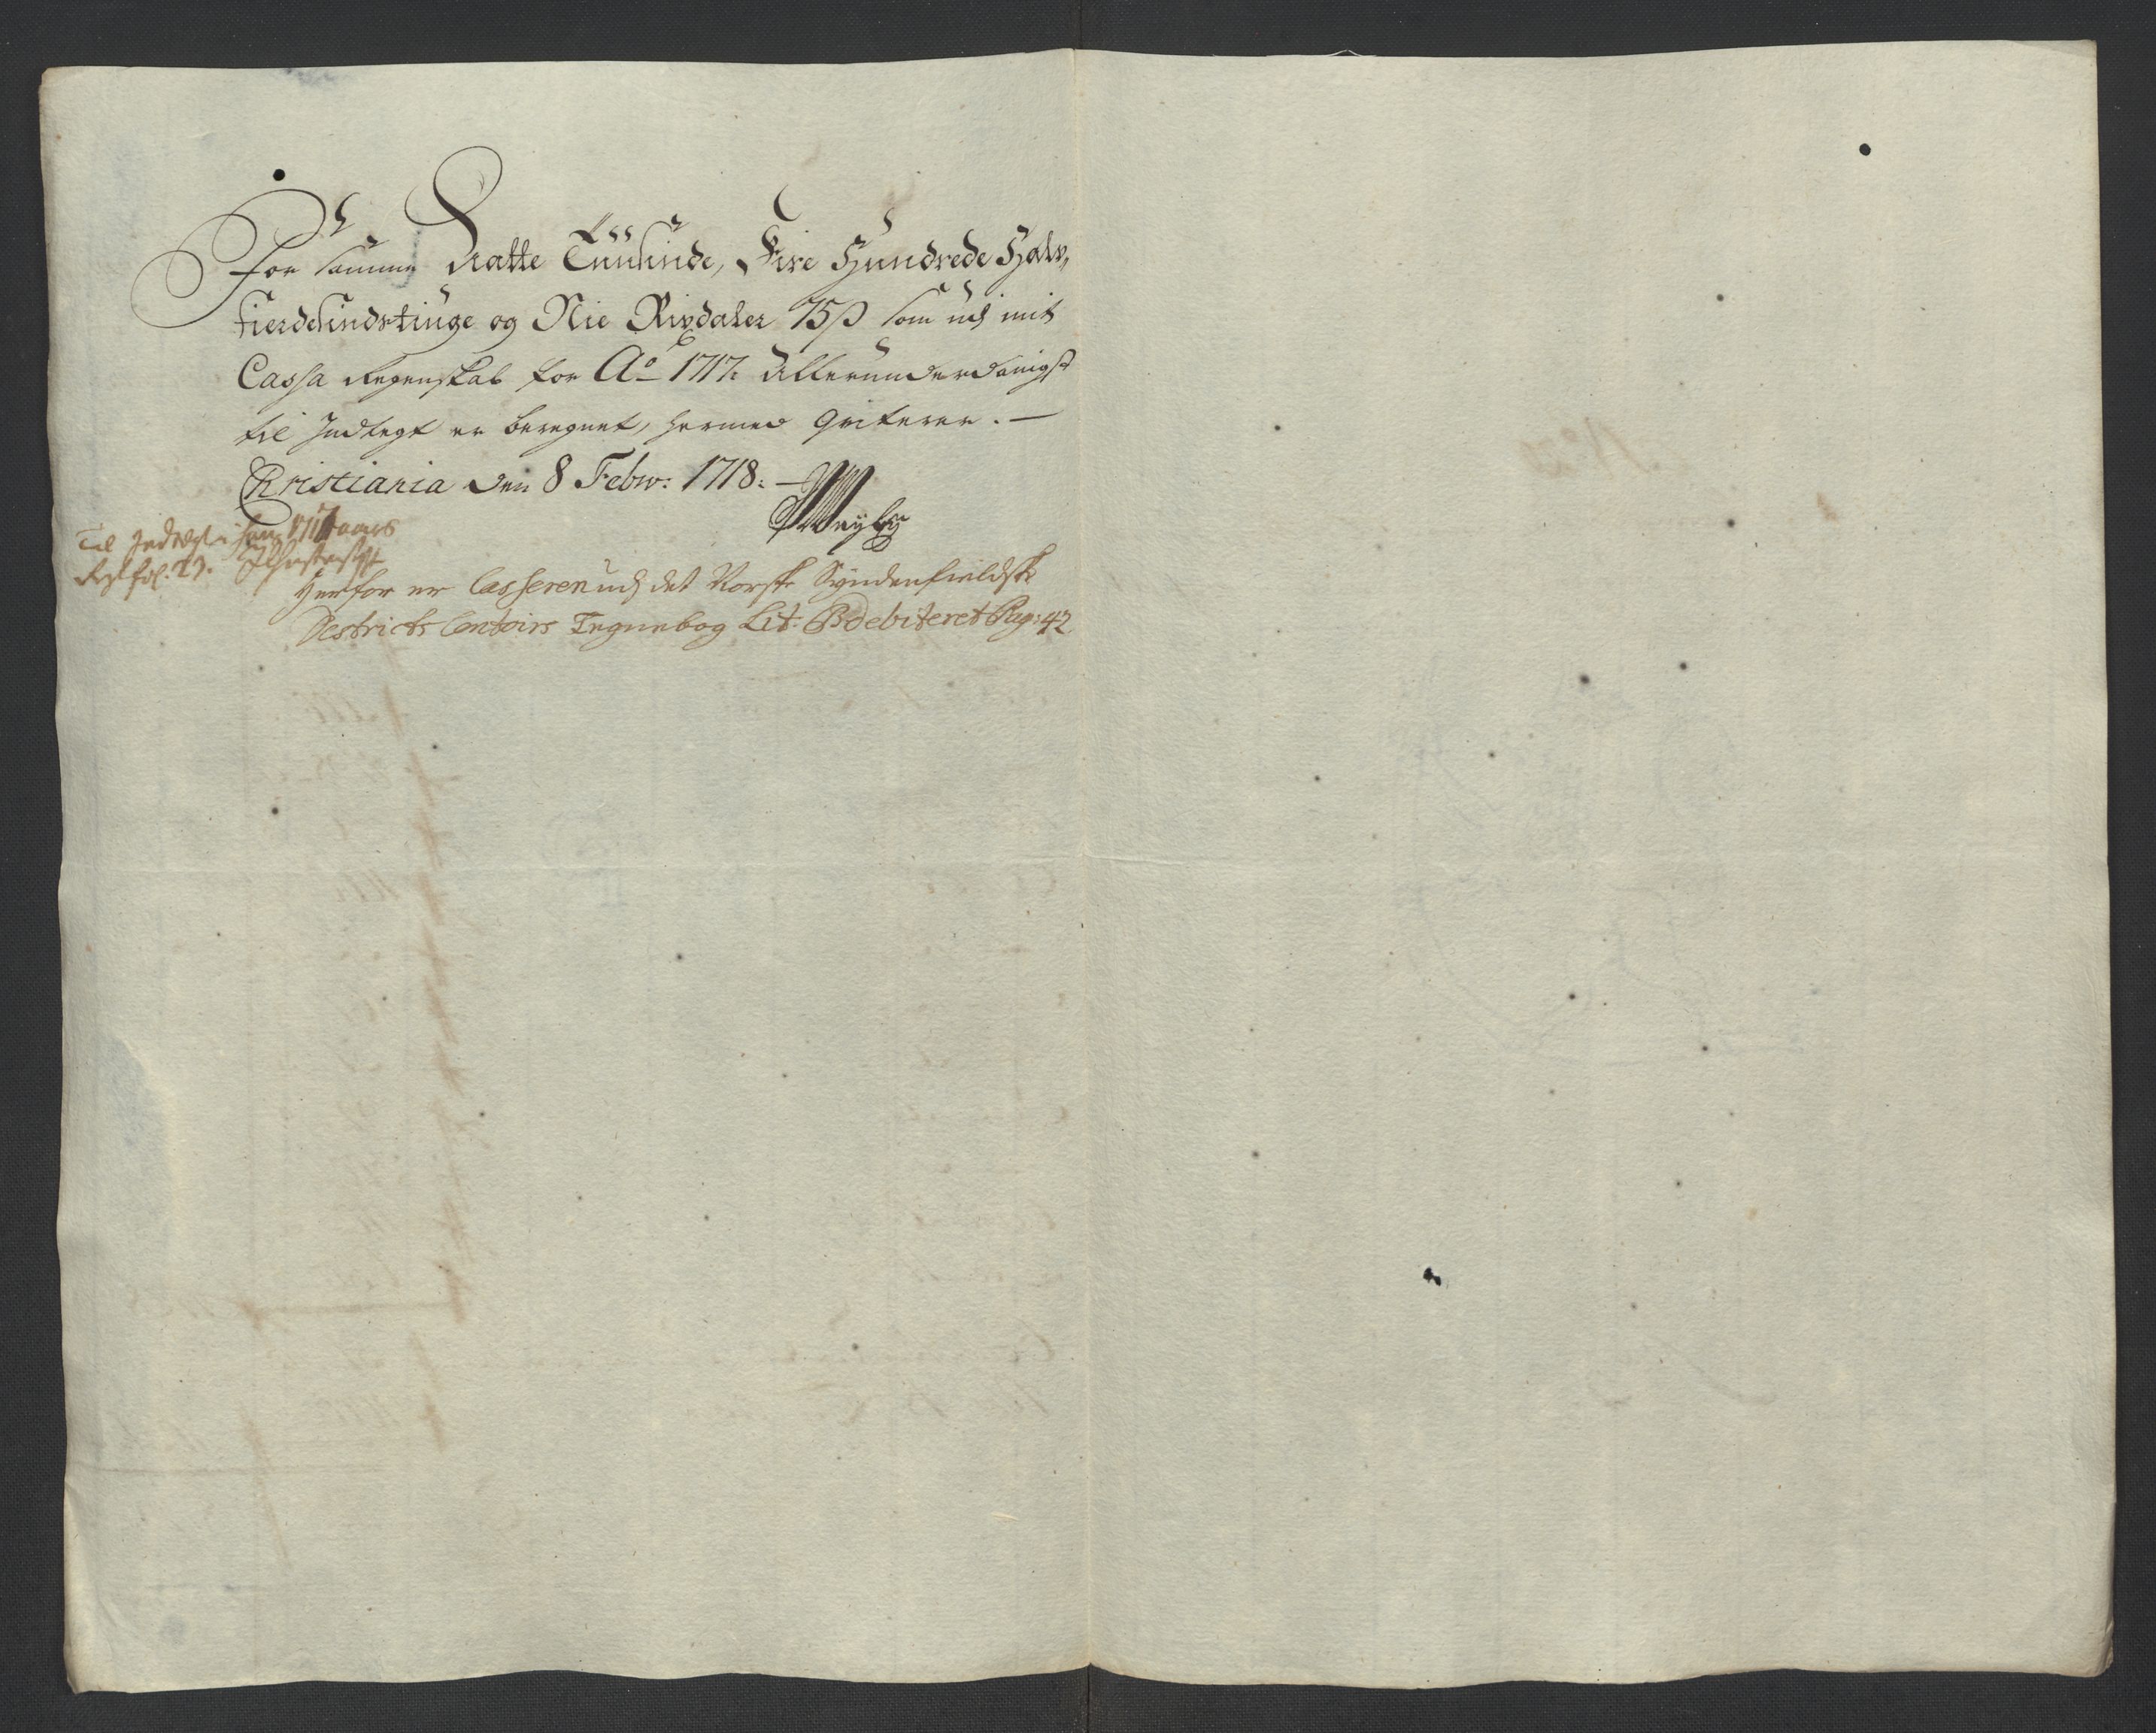 For samme Otte Tuusinde, Fire Hundrede Halv,
fierdesindstiuge og Nie Rixdaler 75 ß som udj mit
Cassa Regenskab for Ao 1717: allerunderdanigst
til Indtegt er beregnet, hermed Qviterer. —
Christiania den 8 Febru: 1718: —
Til Indtegt i 1717 aars
Regsk fol: 23.
Herfor er Casseren udj det Norske Syndenfieldske
Districts Contoirs Tegnebog Lit: B debiteret Pag: 42.
No